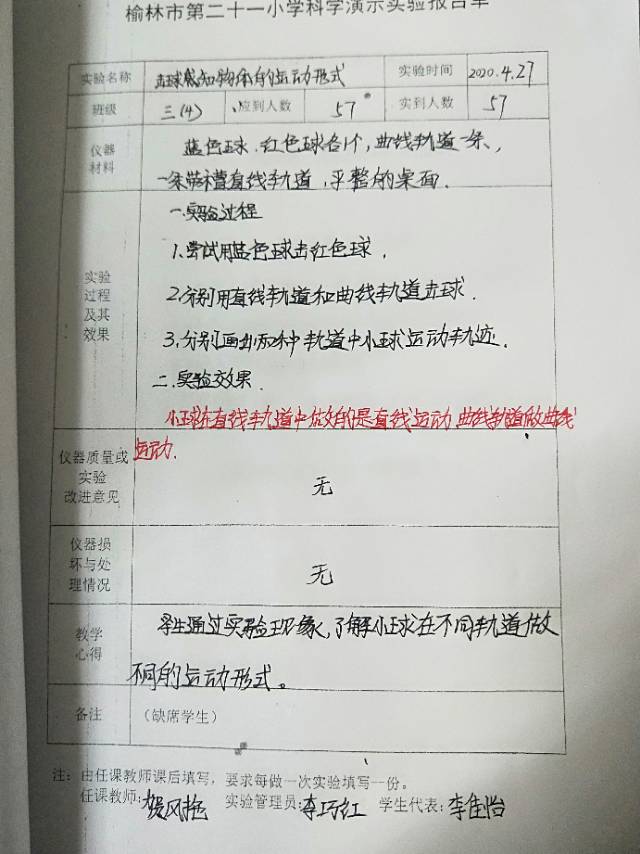 榆林市第二十一小学科学演示实验报告单
实验名称 击球感知物体的运动形式 实验时间 2020.4.27
班级 三(4) 应到人数 57 实到人数 57
仪器
材料
蓝色球、红色球各1个,曲线轨道一条、
一条带槽直线轨道,平整的桌面.
实验
过程
及其
效果
一.实验过程
1.尝试用蓝色球击红色球.
2.分别用直线轨道和曲线轨道击球.
3.分别画出两种轨道中小球运动轨迹.
二.实验效果.
小球在直线轨道中做的是直线运动,曲线轨道做曲线
运动.
仪器质量或
实验
改进意见
无
仪器损
坏与处
理情况
无
教学
心得
学生通过实验现象,了解小球在不同轨道做
不同的运动形式。
备注 (缺席学生)
注:由任课教师课后填写,要求每做一次实验填写一份。
任课教师:贺风艳 实验管理员:李巧红 学生代表:李佳怡